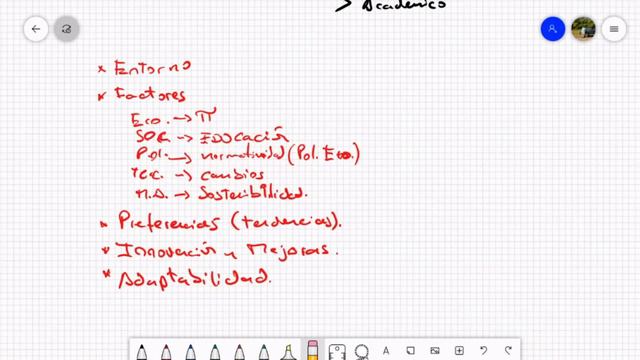 > Académico
* Entorno
* Factores
Eco. → π
SOC. → EDUCACIÓN
Pol. → normatividad (Pol. Eco.)
Tec. → cambios
M.A. → Sostenibilidad.
* Preferencias (tendencias).
* Innovación y Mejoras.
* Adaptabilidad.